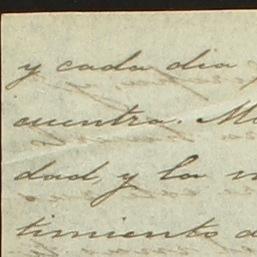 y cada dia
cuentra.
dad, y la
timiento